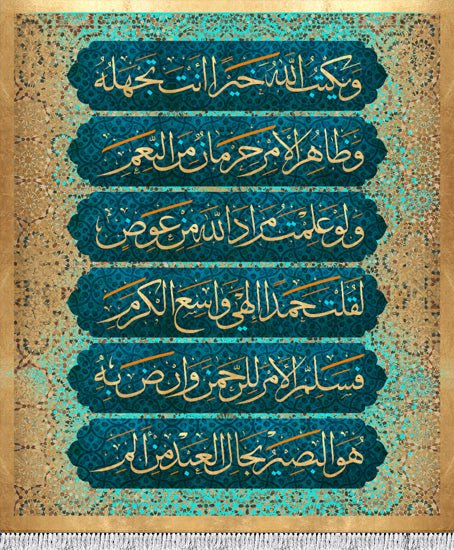 ويكتب الله خيرا انت تجهله
وظاهر الامر حرمان من النعم
ولو علمت مراد الله من عوض
لقلت حمدا الهي واسع الكرم
فسلم الامر للرحمن وارض به
هو البصير بحال العبد من الم